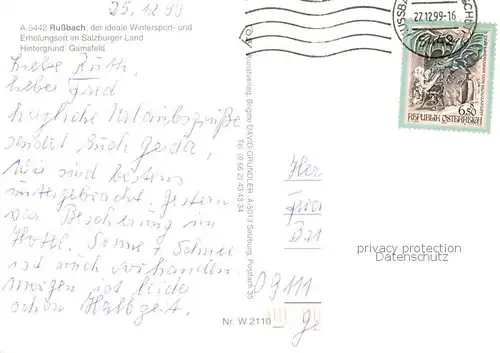 25.12.99
A-5442 Rußbach, der ideale Wintersport- und
Erholungsort im Salzburger Land
Hintergrund: Gamsfeld
Liebe Ruth,
lieber
herzliche Urlaubsgrüße
sendet Euch Gerda,
wir sind bestens
untergebracht. Gestern
war Bescherung im
Hotel. Sonne + Schnee
ist auch vorhanden
morgen ist leider
schon Halbzeit.
Kunstverlag, Begnv DAVID GRÜNDLER A-5013 Salzburg, Postfach 35
Tel (0 66 2) 43 43 34
Nr. W 2110
27.12.99-16
6.50
REPUBLIK ÖSTERREICH
Her
privacy protection
Datenschutz
09111
Ge